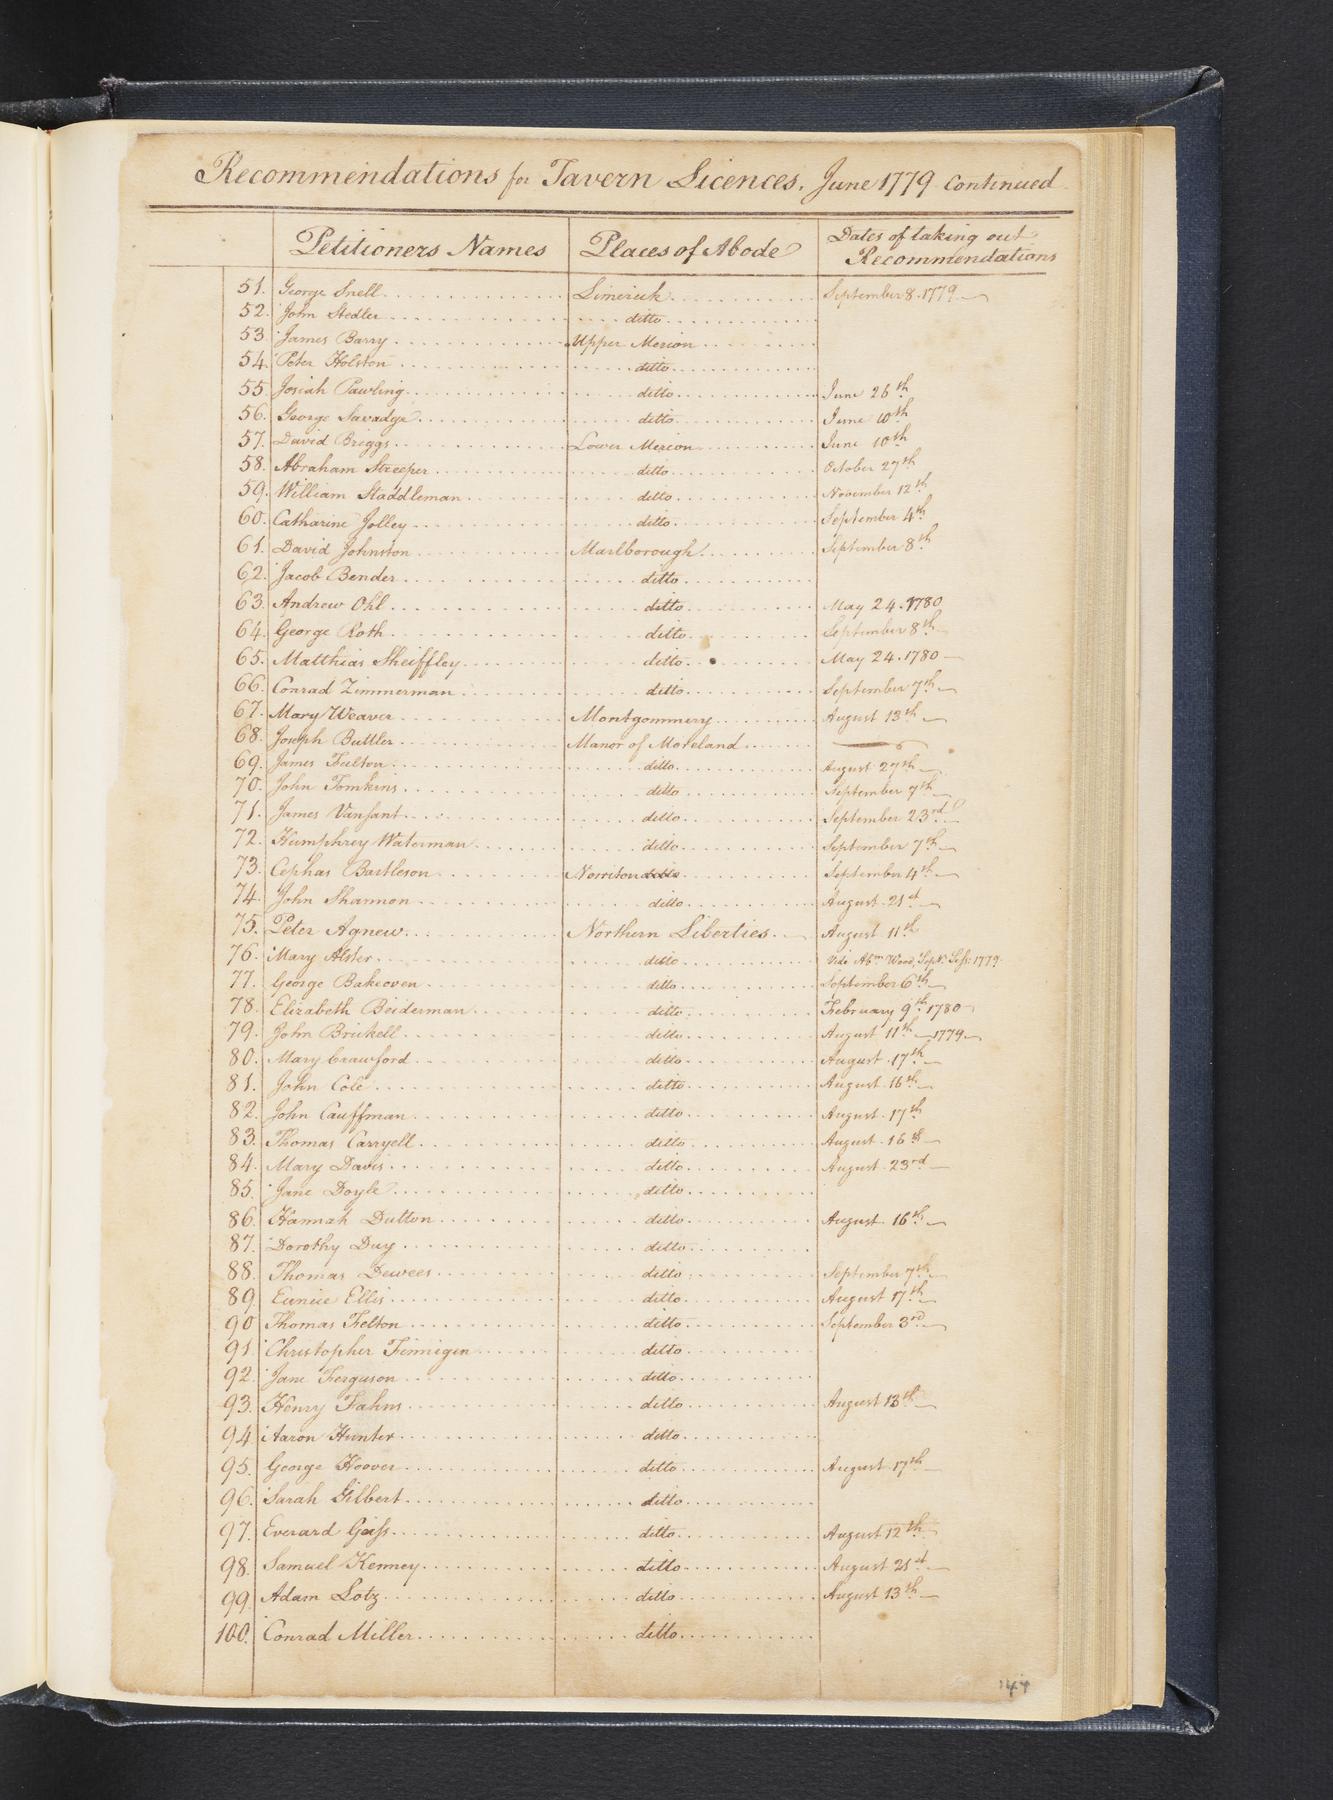 Recommendations for Tavern Licences, June 1779 Continued
Petitioners Names Places of Abode Dates of taking out Recommendations
51. George Snell Limerick September 8. 1779
52. John Stedler ditto
53. James Barry Upper Merion
54. Peter Holston ditto
55. Josiah Pawling ditto June 26th
56. George Savadge ditto June 10th
57. David Briggs Lower Merion June 10th
58. Abraham Streeper ditto October 27th
59. William Staddleman ditto November 12th
60. Catharine Jolley ditto September 4th
61. David Johnston Marlborough September 8th
62. Jacob Bender ditto
63. Andrew Ohl ditto May 24. 1780
64. George Roth ditto September 8th
65. Matthias Sheiffley ditto May 24. 1780
66. Conrad Zimmerman ditto September 7th
67. Mary Weaver Montgommery August 13th
68. Joseph Buttler Manor of Moreland
69. James Fulton ditto August 27th
70. John Tomkins ditto September 7th
71. James Vansant ditto September 23rd
72. Humphrey Waterman ditto September 7th
73. Cephas Bartleson Norriton ditto September 4th
74. John Shannon ditto August 21st
75. Peter Agnew Northern Liberties August 11th
76. Mary Alster ditto Vide Abm Wood, Sept. Sess: 1779
77. George Bakeoven ditto September 6th
78. Elizabeth Beiderman ditto February 9th 1780
79. John Brickell ditto August 11th 1779
80. Mary Crawford ditto August 17th
81. John Cole ditto August 16th
82. John Cauffman ditto August 17th
83. Thomas Carryell ditto August 16th
84. Mary Davis ditto August 23rd
85. Jane Doyle ditto
86. Hannah Dutton ditto August 16th
87. Dorothy Duy ditto
88. Thomas Dewees ditto September 7th
89. Eunice Ellis ditto August 17th
90 Thomas Felton ditto September 3rd
91. Christopher Finnigin ditto
92. Jane Ferguson ditto
93. Henry Fahns ditto August 13th
94 Aaron Hunter ditto
95. George Hoover ditto August 17th
96. Sarah Gilbert ditto
97. Everard Geiss ditto August 12th
98. Samuel Kenney ditto August 21st
99. Adam Lotz ditto August 13th
100. Conrad Miller ditto